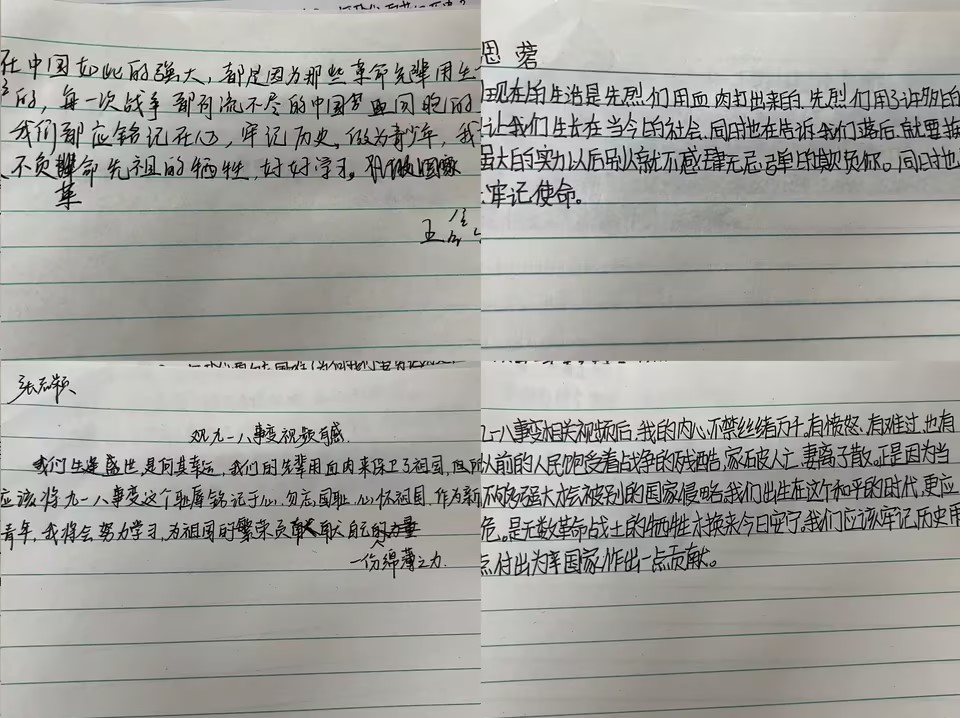 在中国如此的强大,都是因为那些革命先辈用生
的,每一次战争都有流不尽的中国血同胞的
我们都应铭记在心,牢记历史。做为青少年,我
不负革命先祖的牺牲,好好学习。国家
王
思蓉
现在的生活是先烈们用血肉打出来的.先烈们用了许多的
让我们生长在当今的社会.同时也在告诉我们落后.就要挨
强大的实力以后别人就不感肆无忌弹的欺负你。同时也
牢记使命。
张志颖
观九一八事变视频有感.
我们生逢盛世是何其幸运,我们的先辈用血肉来保卫了祖国,但
应该将九一八事变这个耻辱铭记于心.勿忘国耻.心怀祖国.作为新
青年,我将会努力学习,为祖国的繁荣贡献自己的
一份绵薄之力.
九一八事变相关视频后,我的内心不禁丝绪万千.有愤怒、有难过.也有
人前的人民饱受着战争的残酷,家破人亡.妻离子散。正是因为当
不够强大才会被别的国家侵略.我们出生在这个和平的时代,更应
危。是无数革命战士的牺牲才换来今日安宁,我们应该牢记历史用
点付出为国家作出一点贡献。